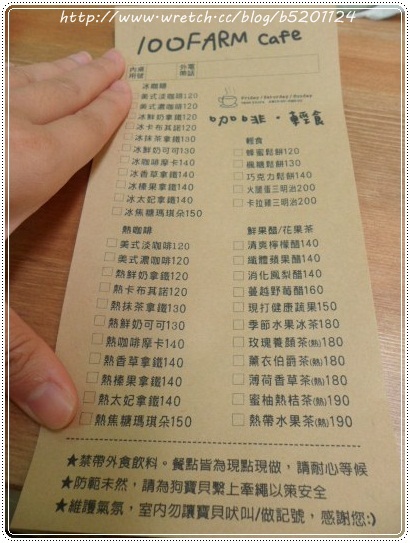 http://www.wretch.cc/blog/b5201124
100FARM cafe
內桌
用號
外電
帶話
冰咖啡
美式淡咖啡120
美式濃咖啡120
冰鮮奶拿鐵120
冰卡布其諾120
冰抹茶拿鐵130
冰鮮奶可可130
冰咖啡摩卡140
冰香草拿鐵140
冰榛果拿鐵140
冰太妃拿鐵140
冰焦糖瑪琪朵150
熱咖啡
美式淡咖啡120
美式濃咖啡120
熱鮮奶拿鐵120
熱卡布其諾120
熱抹茶拿鐵130
熱鮮奶可可130
熱咖啡摩卡140
熱香草拿鐵140
熱榛果拿鐵140
熱太妃拿鐵140
熱焦糖瑪琪朵150
Friday / Saturday / Sunday
咖啡・輕食
輕食
蜂蜜鬆餅120
楓糖鬆餅130
巧克力鬆餅140
火腿蛋三明治200
卡拉雞三明治200
鮮果醋/花果茶
清爽檸檬醋140
纖體蘋果醋140
消化鳳梨醋140
蔓越野莓醋160
現打健康蔬果150
季節水果冰茶180
玫瑰養顏茶(熱)180
薰衣伯爵茶(熱)180
薄荷香草茶(熱)180
蜜柚熱桔茶(熱)190
熱帶水果茶(熱)190
★禁帶外食飲料。餐點皆為現點現做，請耐心等候
★防範未然，請為狗寶貝繫上牽繩以策安全
★維護氣氛，室內勿讓寶貝吠叫/做記號，感謝您:)